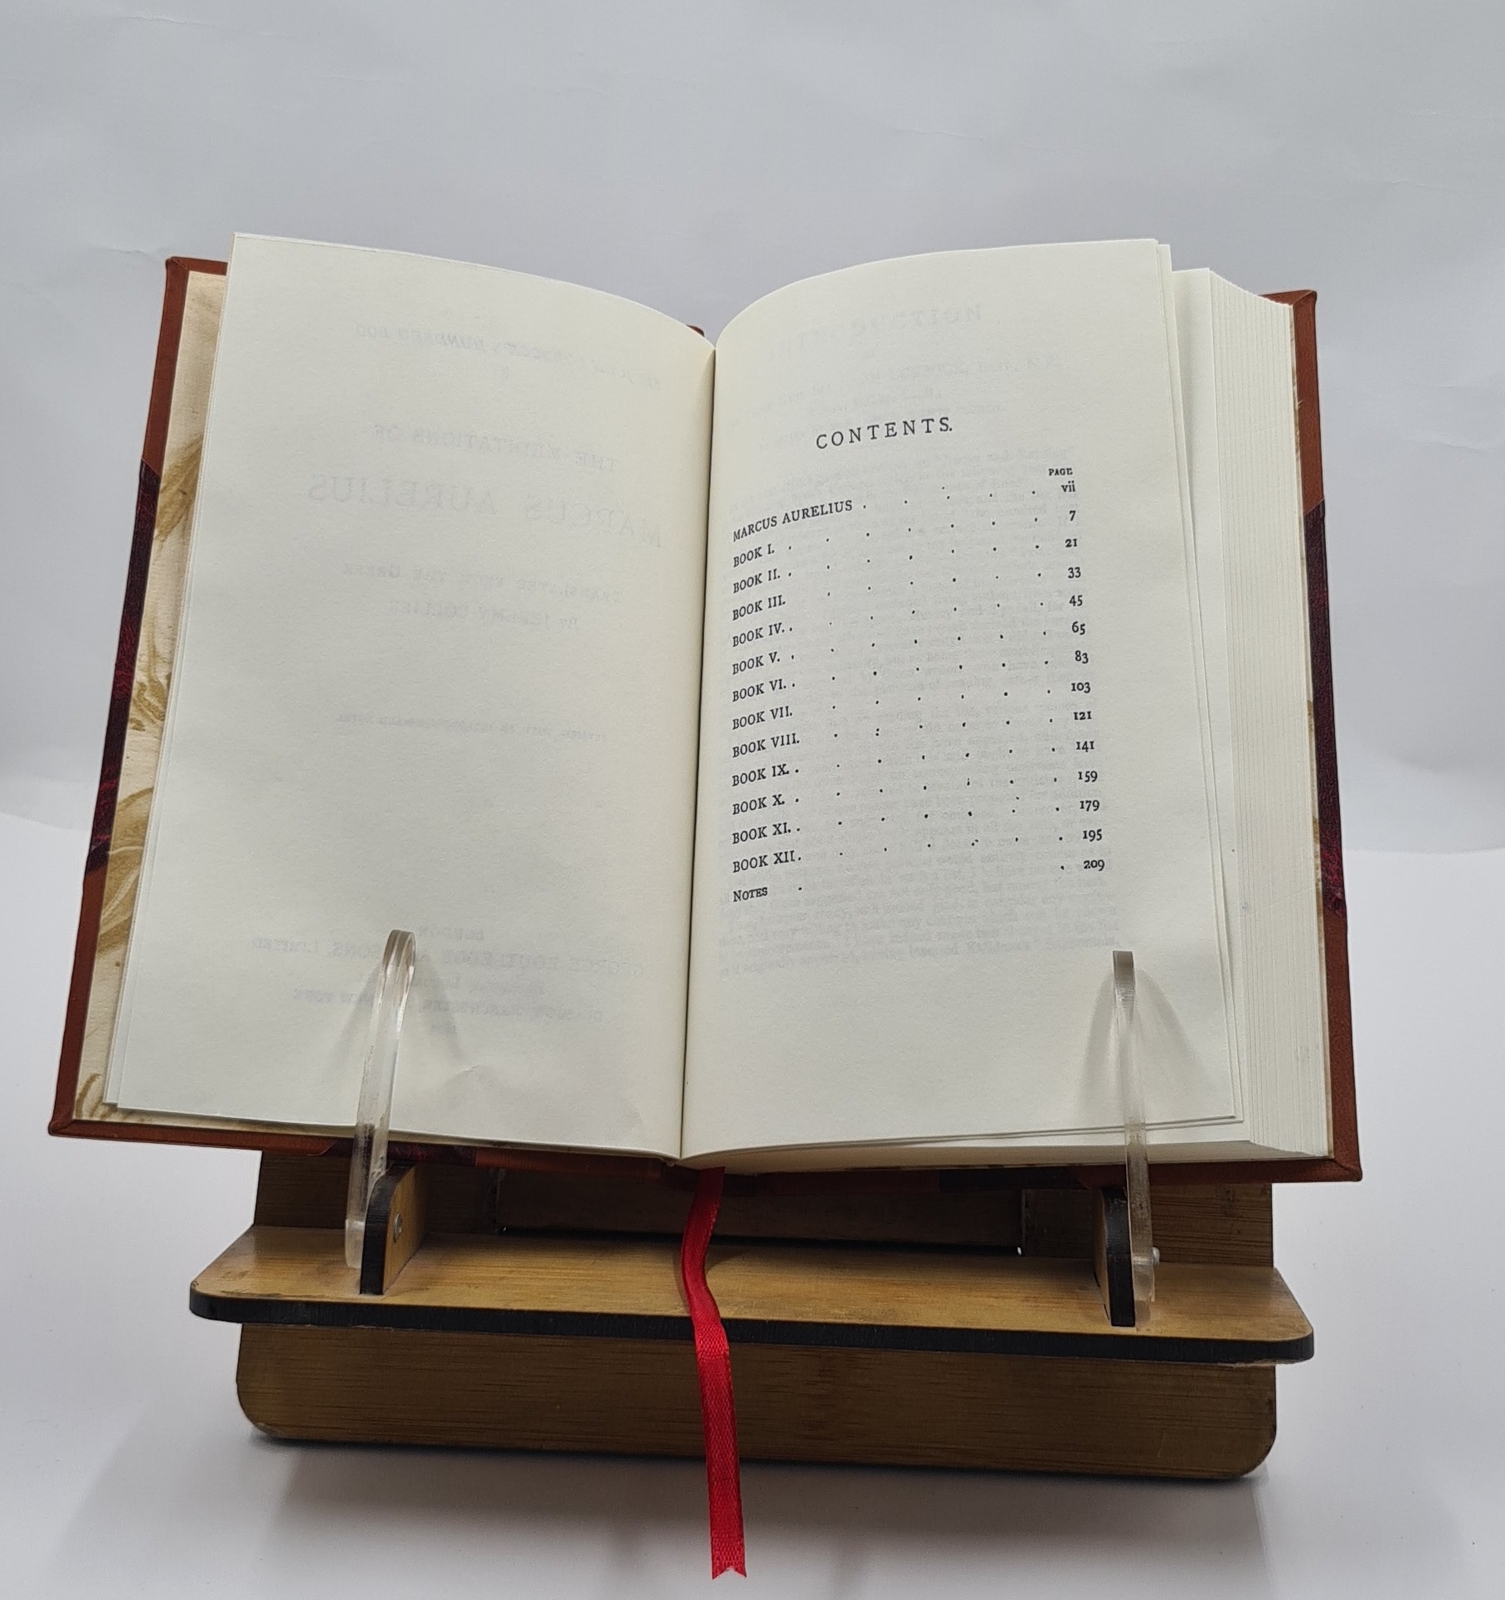 CONTENTS.
PAGE
MARCUS AURELIUS . . . . vii
BOOK I. . . . . . . 7
BOOK II. . . . . . . 21
BOOK III. . . . . . 33
BOOK IV. . . . . . . 45
BOOK V. . . . . . . 65
BOOK VI. . . . . . . 83
BOOK VII. . . . . . 103
BOOK VIII. . . . . . 121
BOOK IX. . . . . . . 141
BOOK X. . . . . . . 159
BOOK XI. . . . . . . 179
BOOK XII. . . . . . 195
NOTES . . 209